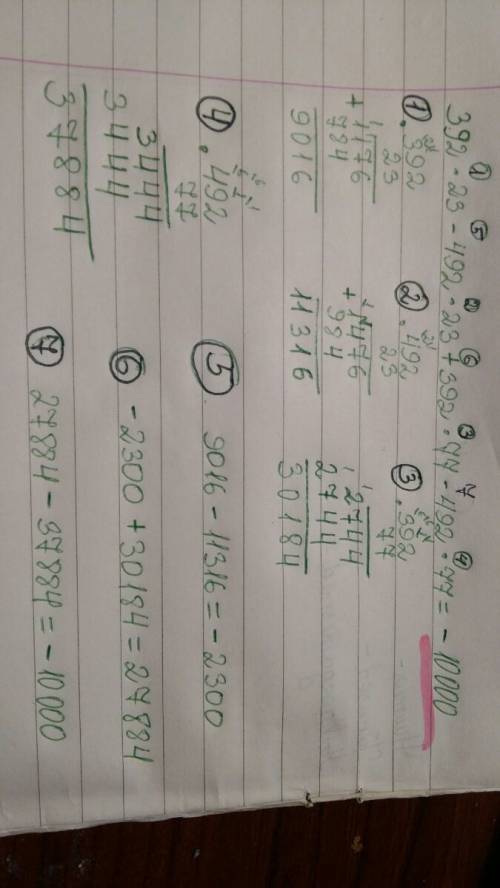 392 · 23 - 492 · 23 + 392 · 77 - 492 · 77 = - 10000
① ⑤ ② ⑥ ③ 7 ④
①. 392
23
1176
+ 784
9016
②. 492
23
1476
+ 984
11316
③. 392
77
2744
2744
30184
④. 492
77
3444
3444
37884
⑤. 9016 - 11316 = - 2300
⑥ - 2300 + 30184 = 27884
⑦ 27884 - 37884 = - 10000